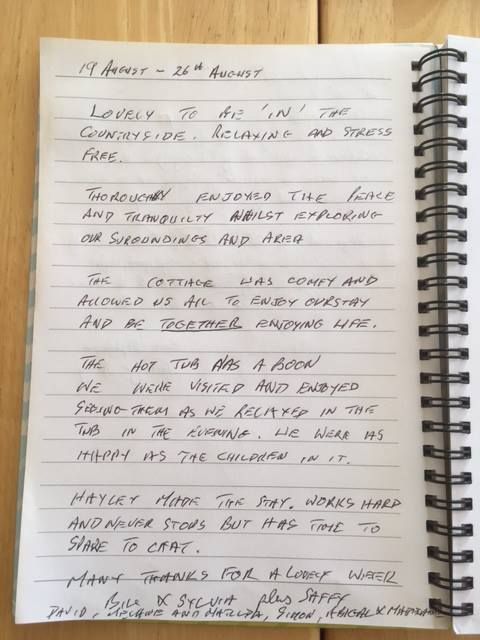 19 AUGUST - 26th AUGUST
LOVELY TO BE 'IN' THE
COUNTRYSIDE. RELAXING AND STRESS
FREE.
THOROUGHLY ENJOYED THE PEACE
AND TRANQUILTY WHILST EXPLORING
OUR SUROUNDINGS AND AREA
THE COTTAGE WAS COMFY AND
ALLOWED US ALL TO ENJOY OUR STAY
AND BE TOGETHER ENJOYING LIFE.
THE HOT TUB WAS A BOON
WE WERE VISITED AND ENJOYED
SEEING THEM AS WE RELAXED IN THE
TUB IN THE EVENING. WE WERE AS
HAPPY AS THE CHILDREN IN IT.
HAYLEY MADE THE STAY. WORKS HARD
AND NEVER STOPS BUT HAS TIME TO
SPARE TO CHAT.
MANY THANKS FOR A LOVELY WEEK
BILL & SYLVIA plus SAFFY
DAVID, MELANIE AND MATILDA, SIMON, ABIGAL &